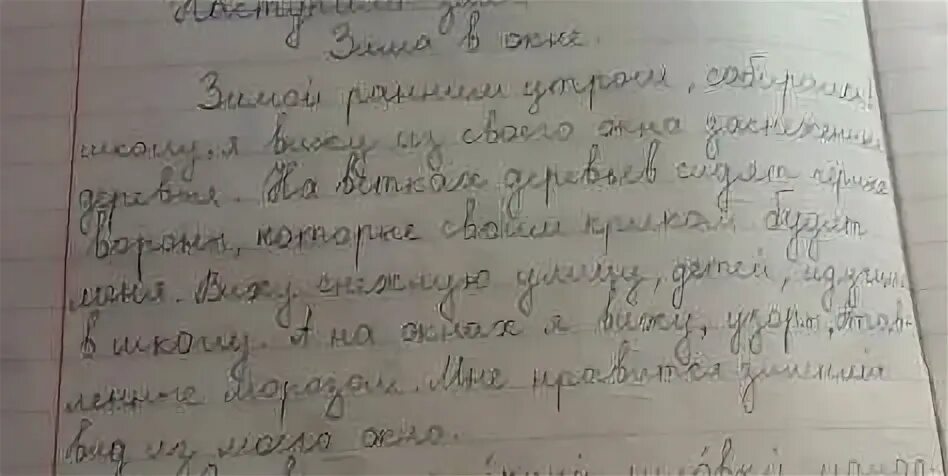 Наступила
Зима в окне.
Зимой ранним утром, собираясь
школу, я вижу из своего окна заснеженные
деревья. На ветках деревьев сидят чёрные
вороны, которые своим криком будят
меня. Вижу снежную улицу, детей, идущих
в школу. А на окнах я вижу, узоры, остав-
ленные морозом. Мне нравится зимний
вид из моего окна.